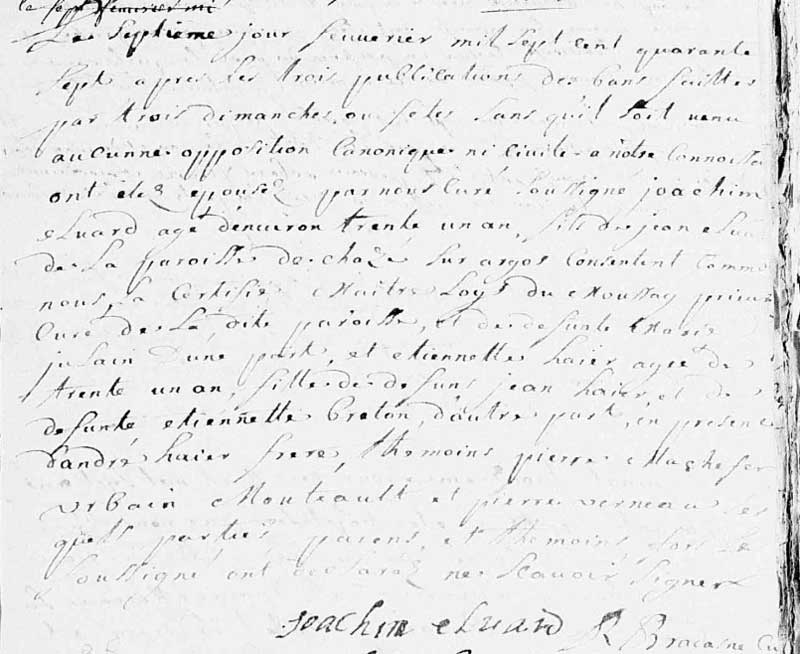 le sept
Le septieme jour feuverier mil sept cent quarante
sept apres les trois publications des bans faittes
par trois dimanches ou fetes sans qu'il soit venu
aucunne opposition Canonique ni civile a notre Connoissa
ont étéz épouséz par nous Curé soussigné joachim
eluard agé d'enuiron trente un an, fils de jean elua
de la paroisse de chazé sur argos Consentent Comme
nous la Certifié Maitre Loys du Moussay prieur
Curé de la dite paroisse, et de defunte Marie
julain d'une part, et etiennette haier agée de
trente un an, fille de defuns jean haier, et de
defunte etiennette breton, d'autre part, en presence
d'andré haier frere, themoins pierre
urbain Monteault et pierre verneau les
quels parties parens, et themoins, fors le
soussigné ont declaréz ne scauoir signer
joachim eluard R Bracasne Cu